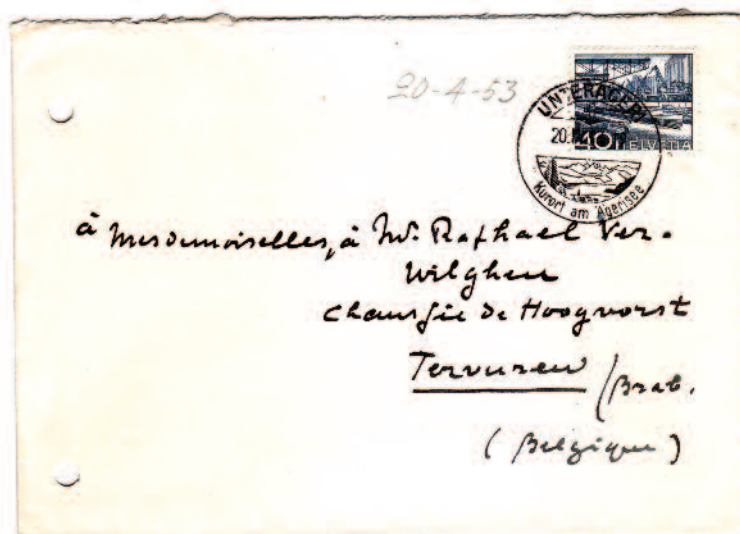 20-4-53
UNTERÄGERI
20.
40 HELVETIA
Kurort am Ägerisee
à Mesdemoiselles, à Mr. Raphael Ver-
wilghen
Chaussée de Hoogvorst
Tervuren / Brab.
(Belgique)